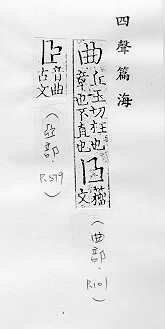 四聲篇海
曲 丘玉切枉也章也不直也 籀文
(曲部.P.101)
音曲古文
(亞部.P.579)